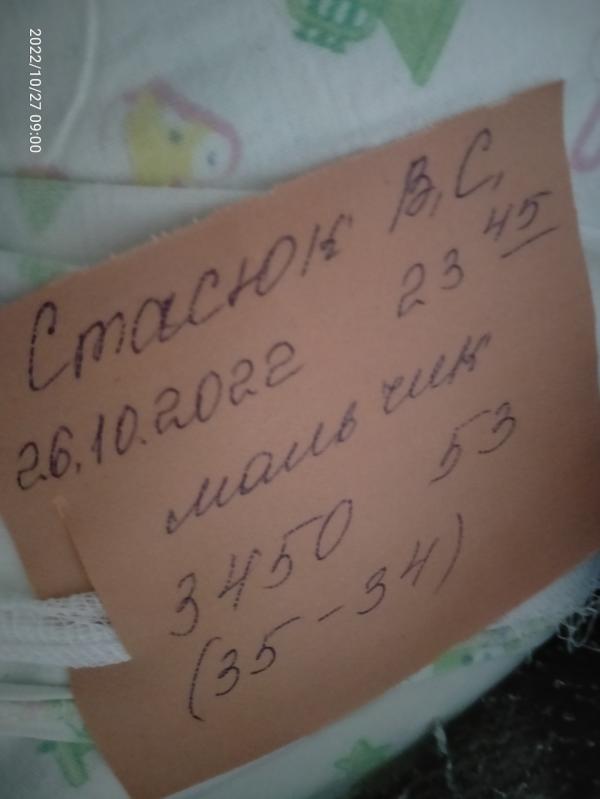 2022/10/27 09:00
Стасюк В.С.
26.10.2022 23 45
мальчик
3450 53
(35-34)